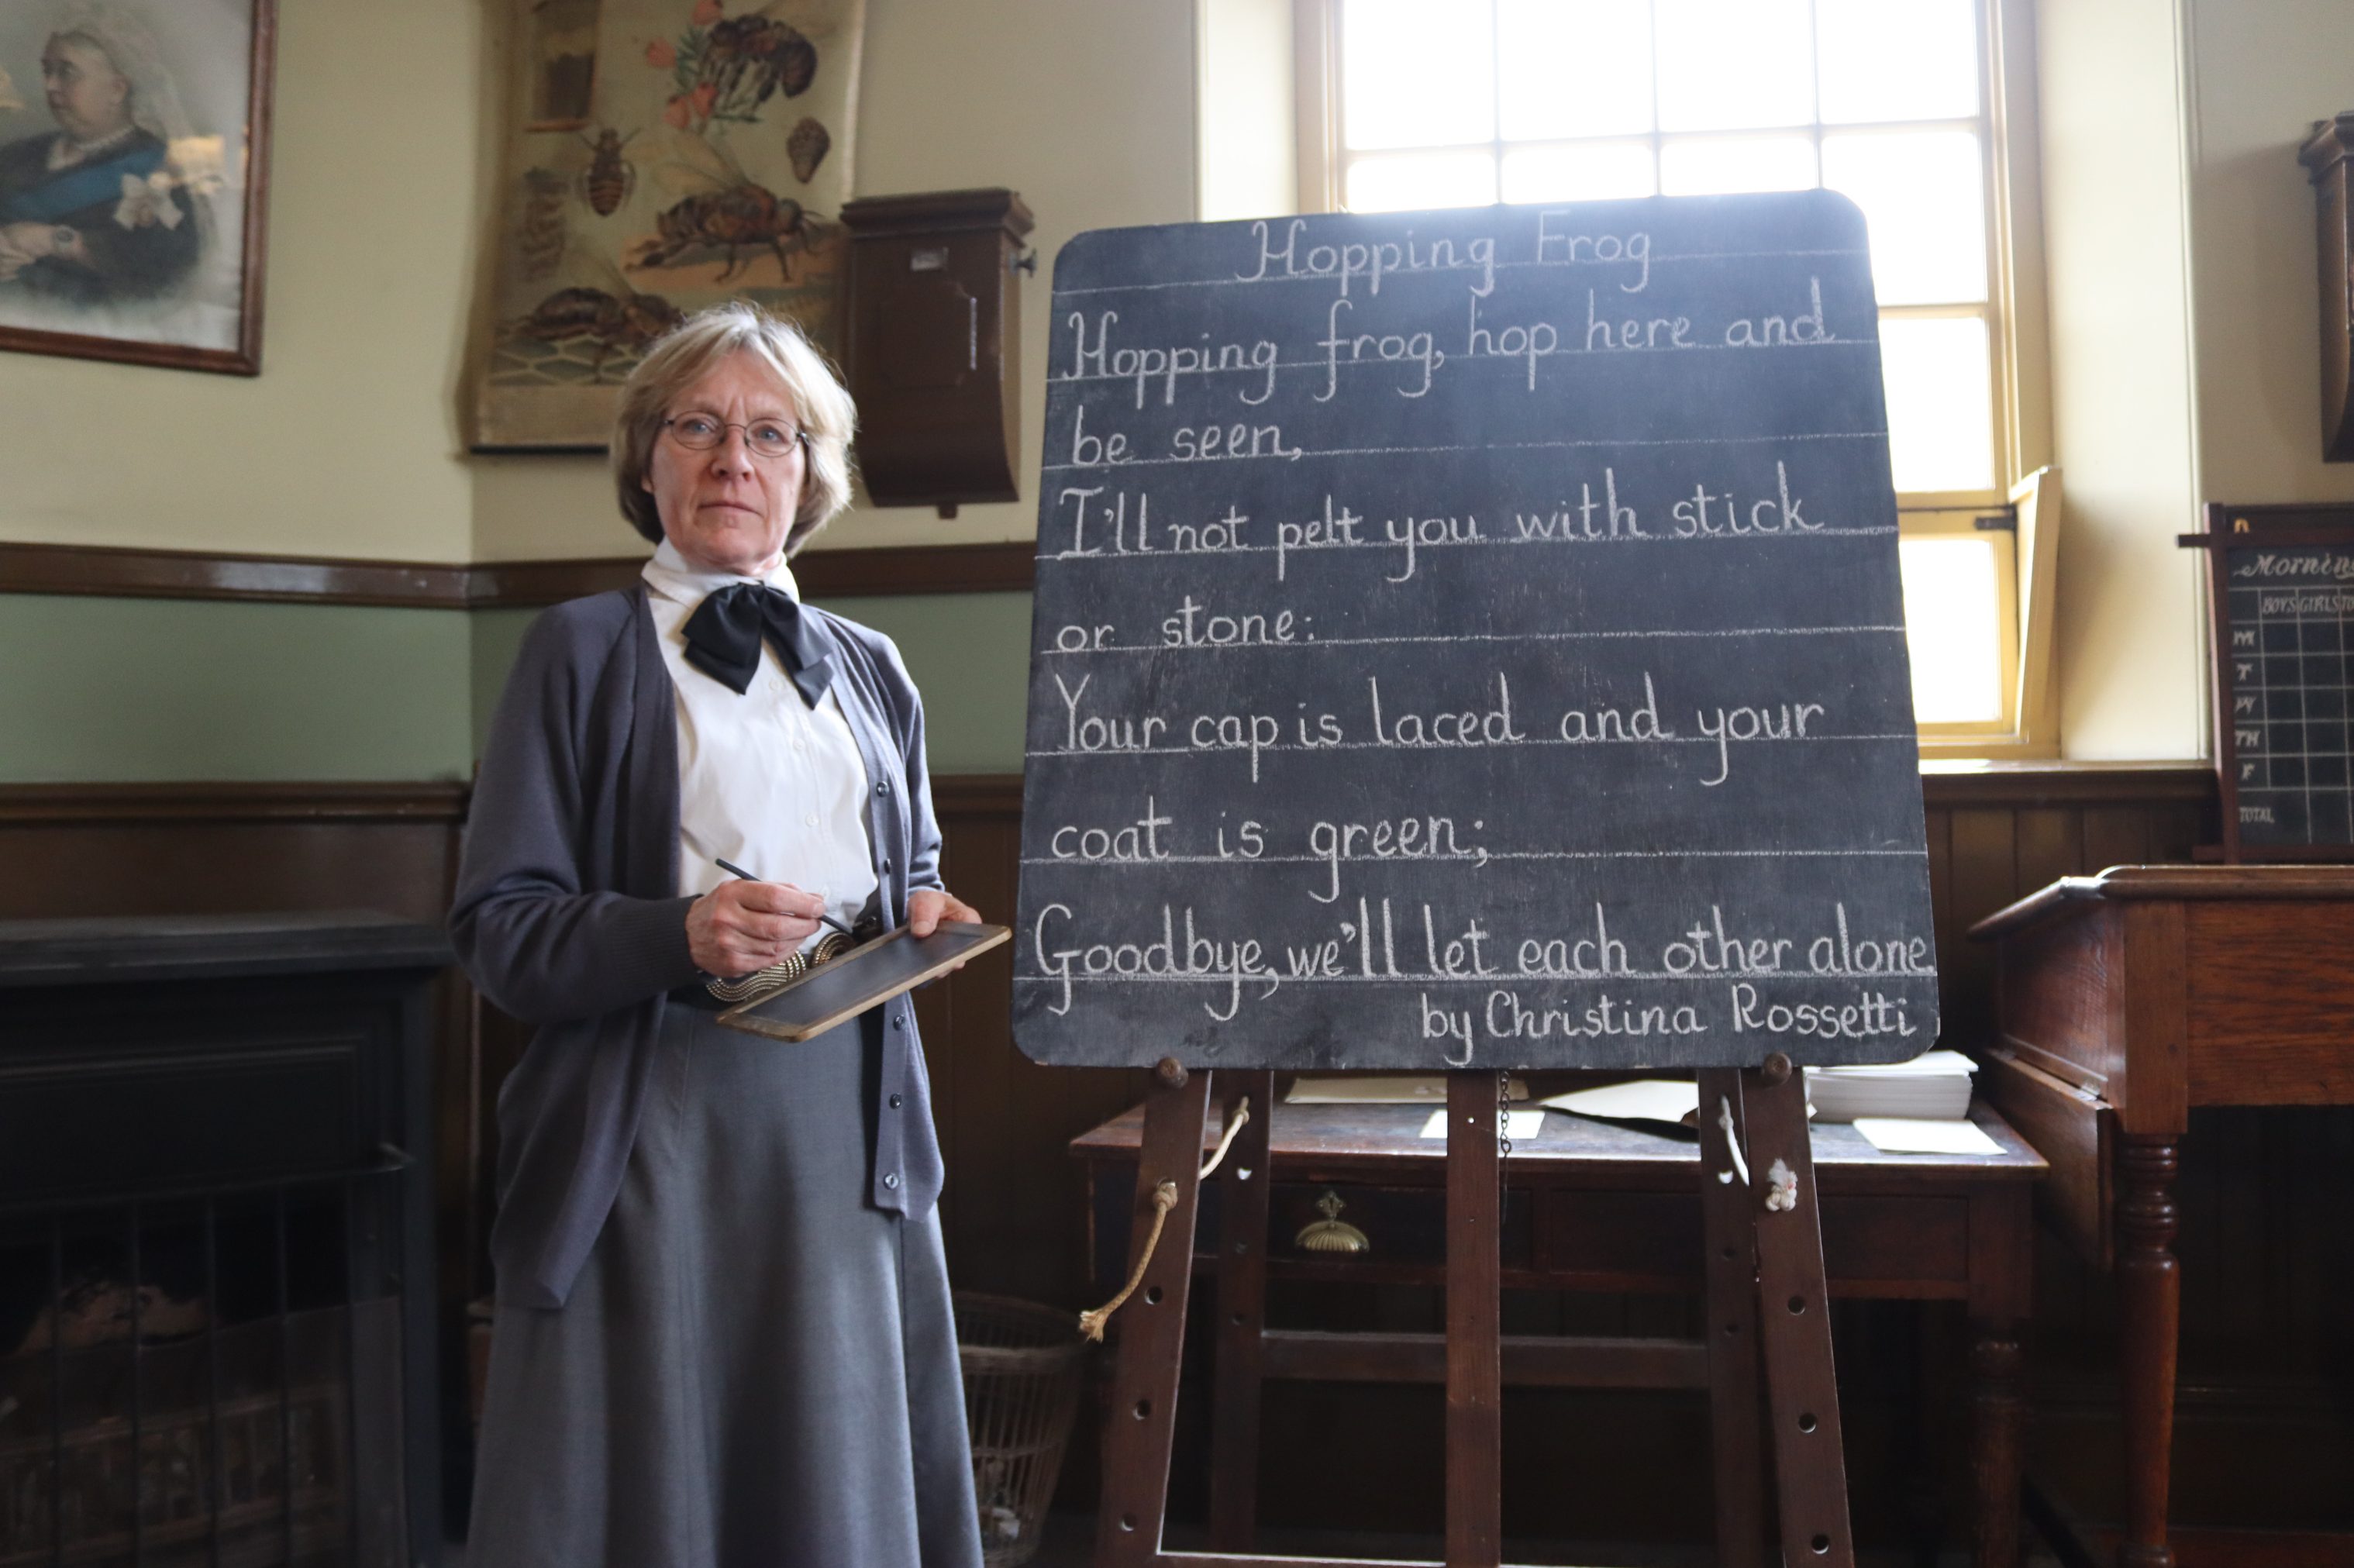 Hopping Frog
Hopping frog, hop here and
be seen,
I'll not pelt you with stick
or stone:
Your cap is laced and your
coat is green;
Goodbye, we'll let each other alone
by Christina Rossetti
BOYS GIRLS
M
T
W
TH
F
TOTAL